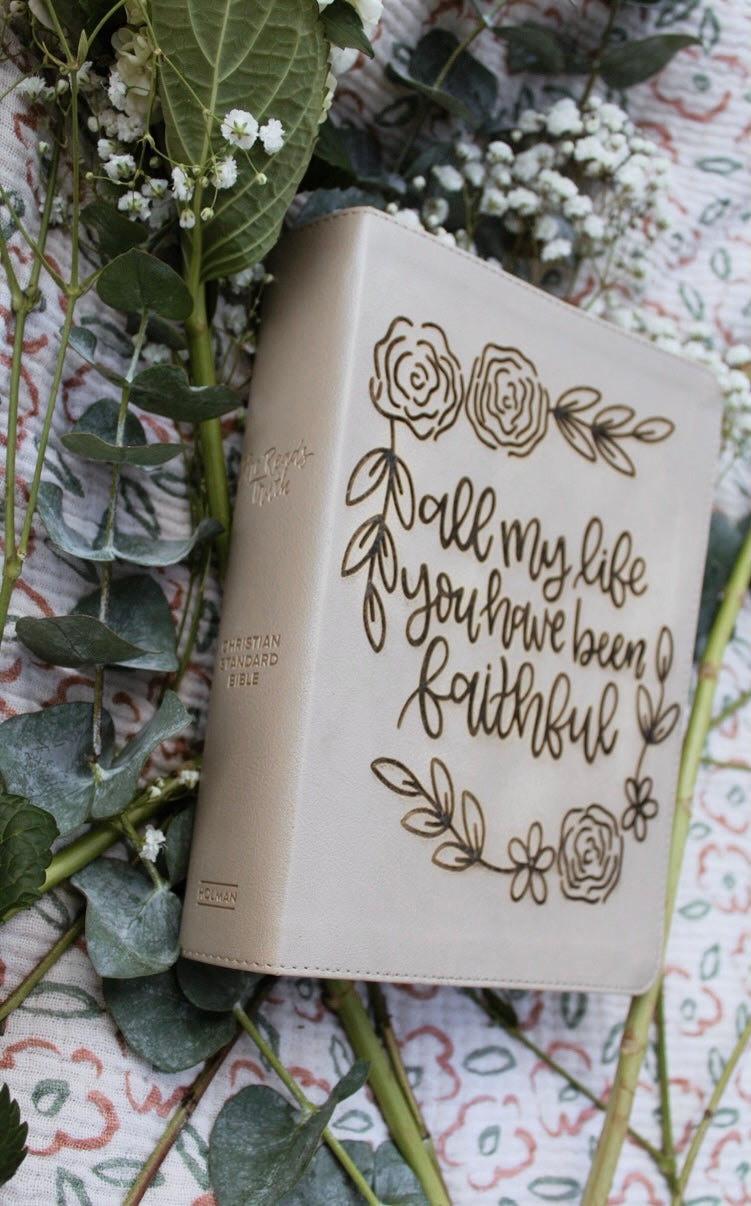 Reads
Truth
CHRISTIAN
STANDARD
BIBLE
HOLMAN
all my life
you have been
faithful